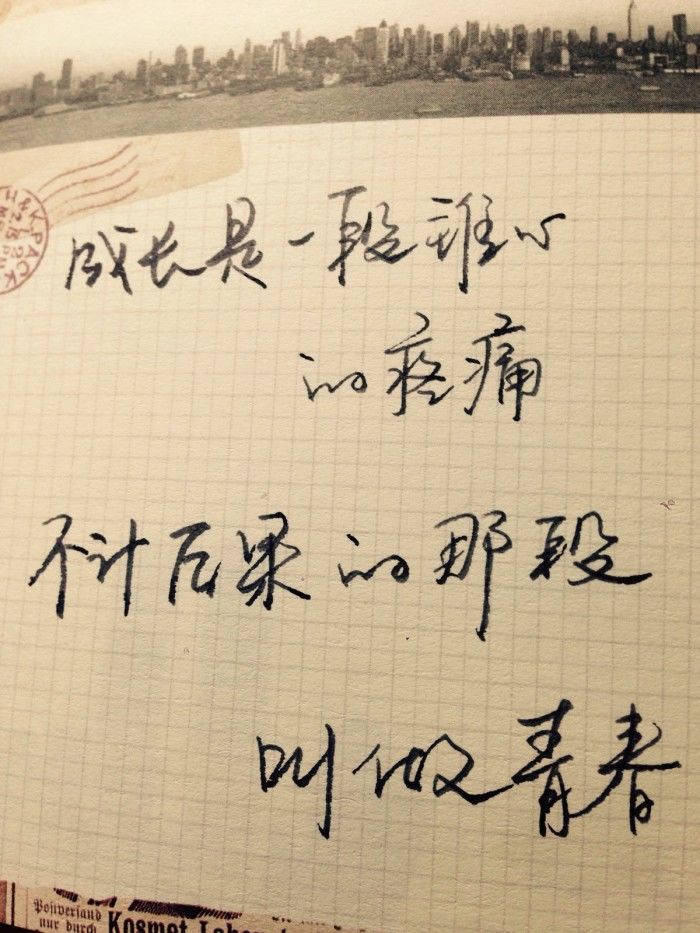 成长是一段锥心
的疼痛
不计后果的那段
叫做青春
Poſtverſand
nur durch Kosmet